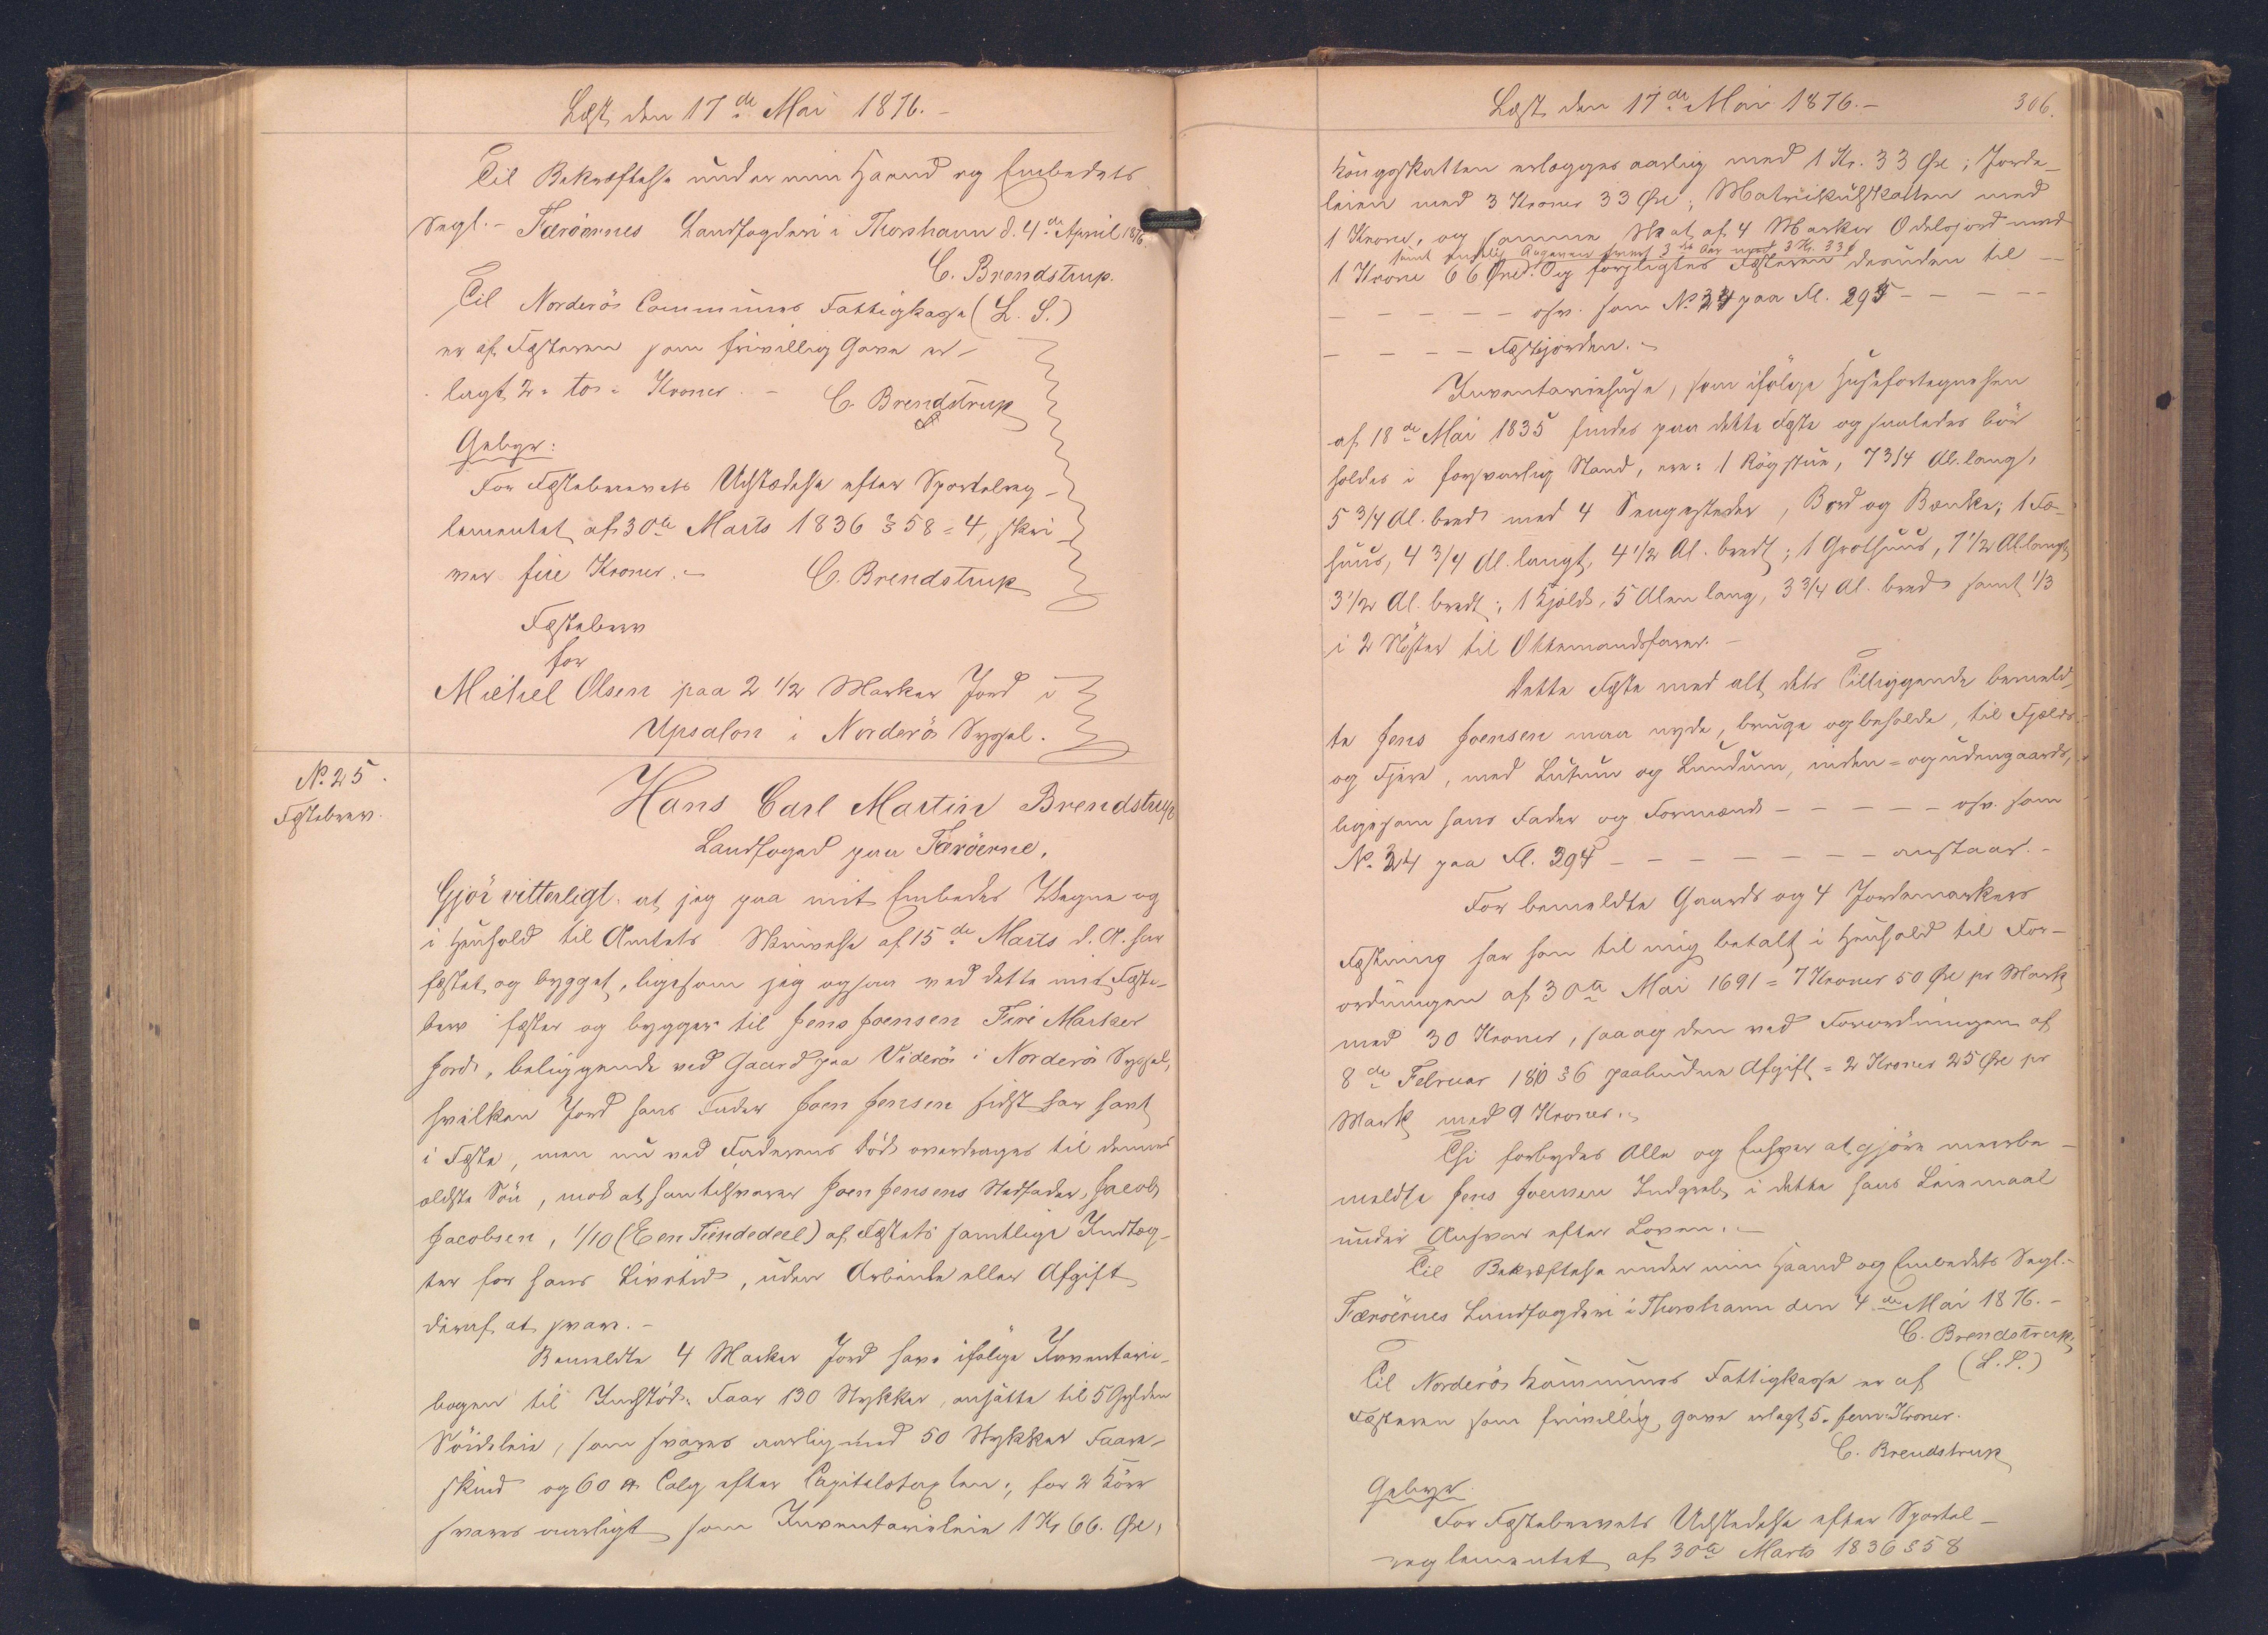 Læst den 17de Mai 1876.-
Til Bekræftelse under min Haand og Embedets
Segl.- Færöernes Landfogderi i Thorshavn d. 4de April 1876.
C. Brendstrup.
Til Norderös Communes Fattigkasse (L. S.)
er af Fæsteren som frivillig Gave er-
lagt 2 = to = Kroner. -
C. Brendstrup
Gebyr:
For Fæstebrevets Udstædelse efter Sportelreg-
lementet af 30te Marts 1836 § 58 = 4, skri-
ver fire Kroner. -
C. Brendstrup
Fæstebrev
for
Michel Olsen paa 2 1/2 Marker Jord i
Upsalon i Norderö Syssel.
No. 25.
Fæstebrev.
Hans Carl Martin Brendstrup
Landfoged paa Færöerne,
Gjör vitterligt: at jeg paa mit Embedes Vegne og
i Henhold til Amtets Skrivelse af 15de Marts d. A. har
fæstet og bygget, ligesom jeg ogsaa ved dette mit Fæste-
brev fæster og bygger til Jens Joensen Fire Marker
Jord, beliggende ved Gaard paa Viderö i Norderö Syssel,
hvilken Jord hans Fader Joen Jensen sidst har havt
i Fæste, men nu ved Faderens Död overdrages til dennes
ældste Sön, mod at han tilsvarer Joen Jensens Stedfader, Jacob
Jacobsen, 1/10 (Een Tiendedeel) af Fæstets samtlige Indtæg-
ter for hans Livstid, uden Arbeide eller Afgift
deraf at svare. -
Bemeldte 4 Marker Jord have ifölge Inventarie-
bogen til Indstöd: Faar 130 Stykker, ansatte til 5 Gylden
Söideleie, som svares aarlig med 50 Stykker Faare-
skind og 60 ℔ Talg efter Capitelstaxten; for 2 Köer
svares aarligt som Inventarieleie 1 Kr 66. Øre,
Læst den 17de Mai 1876.-
306.
Kongsskatten erlægges aarlig med 1 Kr. 33 Øre; Jorde-
leien med 3 Kroner 33 Øre; Matrikulskatten med
1 Krone, og samme Skat af 4 Marker Odelsjord med
samt hvert 3die Aar med 3 Kr. 33
1 Krone 66 Øre. Og forpligtes Fæsteren desuden til -
- - - - - osv. som No. 24 paa Fl. 295 - - - -
- - - - Fæstejorden. -
Inventariehuse, som ifölge Husefortegnelsen
af 18de Mai 1835 findes paa dette Fæste og saaledes bör
holdes i forsvarlig Stand, ere: 1 Rögstue, 7 3/4 Al. lang,
5 3/4 Al. bred med 4 Sengesteder, Bord og Bænke; 1 Fæ-
huus, 4 3/4 Al. langt, 4 1/2 Al. bredt; 1 Grothuus, 7 1/2 Al. langt,
3 1/2 Al. bredt; 1 Hjald, 5 Alen lang, 3 3/4 Al. bred samt 1/3
i 2 Nöster til Ottemandsfarer. -
Dette Fæste med alt dets Tilliggende bemeld-
te Jens Joensen maa nyde, bruge og beholde, til Fjelds
og Fjære, med Lutum og Lundum, inden- og udengaards,
ligesom hans Fader og Formænd - - - - - osv. som
No. 24 paa Fl. 294 - - - - - - - anstaar. -
For bemeldte Gaards og 4 Jordemarkers
Fæstning har han til mig betalt i Henhold til For-
ordningen af 30te Mai 1691 = 7 Kroner 50 Øre pr Mark
med 30 Kroner, saa og den ved Forordningen af
8de Februar 1810 § 6 paabudne Afgift = 2 Kroner 25 Øre pr
Mark med 9 Kroner. -
Thi forbydes Alle og Enhver at gjöre meerbe-
meldte Jens Joensen Indgreb i dette hans Leiemaal
under Ansvar efter Loven. -
Til Bekræftelse under min Haand og Embedets Segl.-
Færöernes Landfogderi i Thorshavn den 4de Mai 1876. -
C. Brendstrup
(L. S.)
Til Norderös Kommunes Fattigkasse er af
Fæsteren som frivillig Gave erlagt 5 - fem Kroner.
C. Brendstrup
Gebyr.
For Fæstebrevets Udstedelse efter Sportel-
reglementet af 30te Marts 1836 § 58